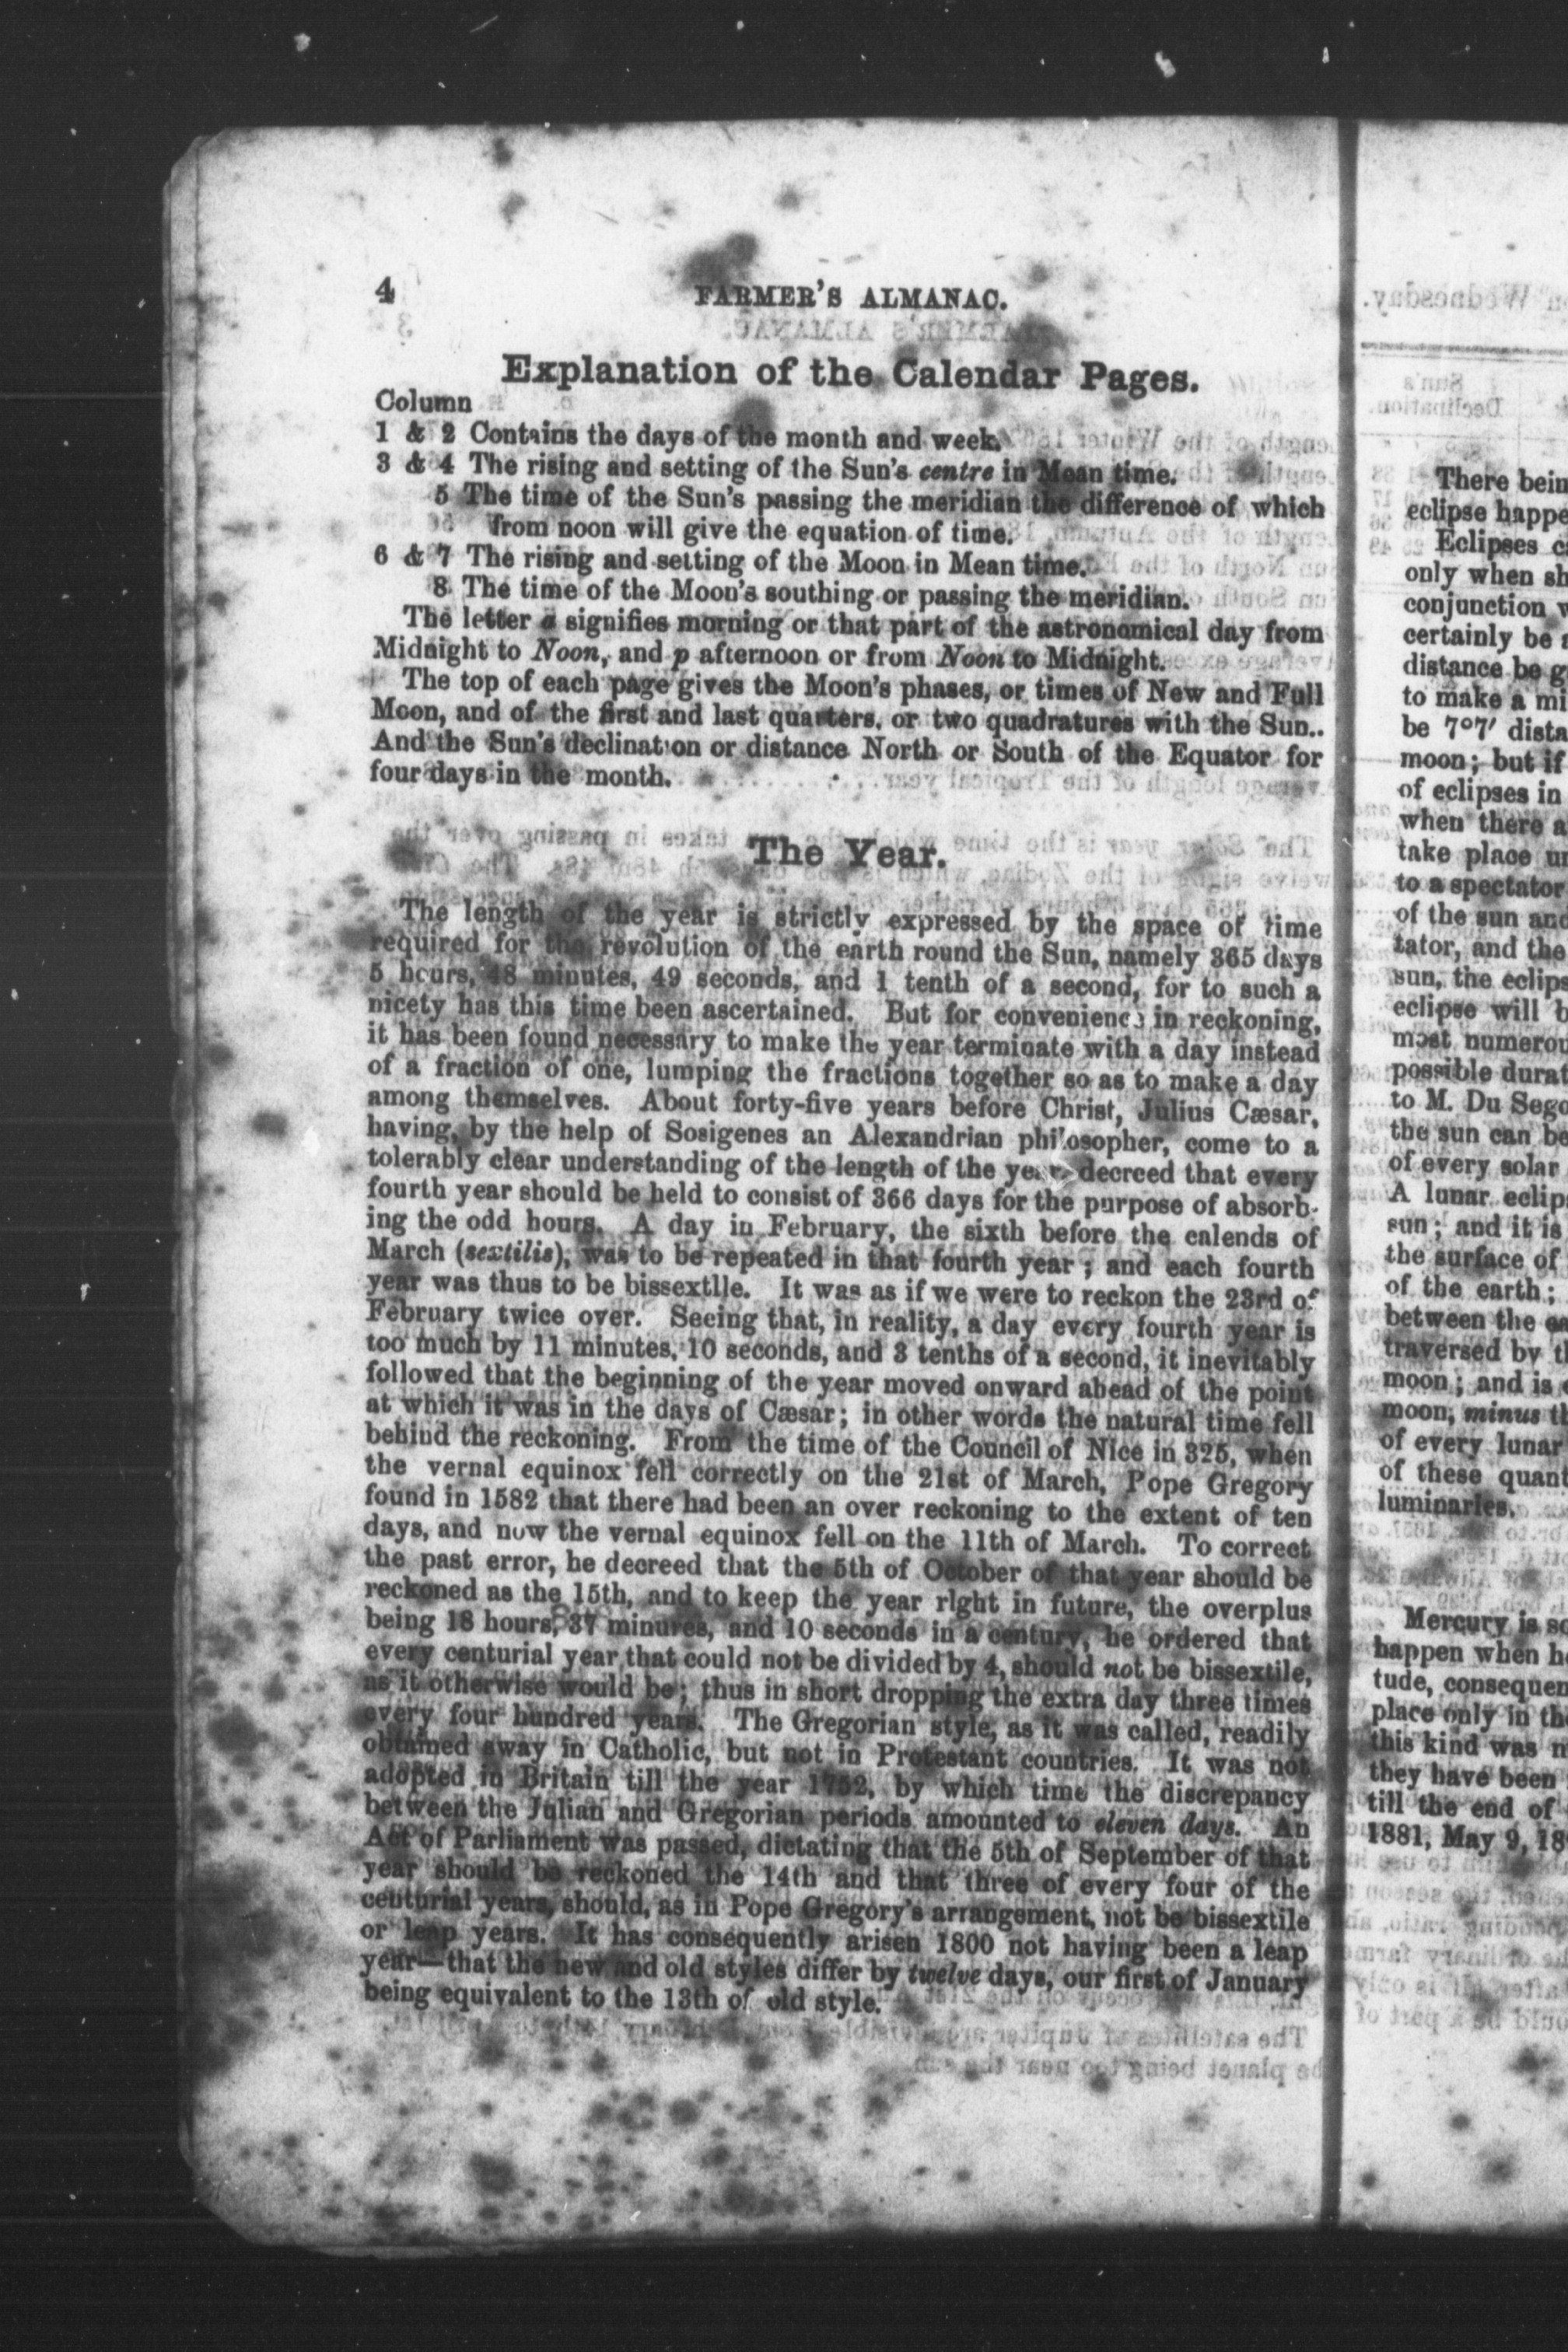 4 FARMER'S ALMANAC.
Explanation of the Calendar Pages.
Column
1 & 2 Contains the days of the month and week.
3 & 4 The rising and setting of the Sun's centre in Mean time.
5 The time of the Sun's passing the meridian the difference of which
from noon will give the equation of time.
6 & 7 The rising and setting of the Moon in Mean time.
8 The time of the Moon's southing or passing the meridian.
The letter a signifies morning or that part of the astronomical day from
Midnight to Noon, and p afternoon or from Noon to Midnight.
The top of each page gives the Moon's phases, or times of New and Full
Moon, and of the first and last quarters, or two quadratures with the Sun..
And the Sun's declination or distance North or South of the Equator for
four days in the month.
The Year.
The length of the year is strictly expressed by the space of time
required for the revolution of the earth round the Sun, namely 365 days
5 hours, 48 minutes, 49 seconds, and 1 tenth of a second, for to such a
nicety has this time been ascertained. But for convenience in reckoning,
it has been found necessary to make the year terminate with a day instead
of a fraction of one, lumping the fractions together so as to make a day
among themselves. About forty-five years before Christ, Julius Cæsar,
having, by the help of Sosigenes an Alexandrian philosopher, come to a
tolerably clear understanding of the length of the year, decreed that every
fourth year should be held to consist of 366 days for the purpose of absorb-
ing the odd hours. A day in February, the sixth before the calends of
March (sextilis), was to be repeated in that fourth year; and each fourth
year was thus to be bissextlle. It was as if we were to reckon the 23rd of
February twice over. Seeing that, in reality, a day every fourth year is
too much by 11 minutes, 10 seconds, and 3 tenths of a second, it inevitably
followed that the beginning of the year moved onward ahead of the point
at which it was in the days of Cæsar; in other words the natural time fell
behind the reckoning. From the time of the Council of Nice in 325, when
the vernal equinox fell correctly on the 21st of March, Pope Gregory
found in 1582 that there had been an over reckoning to the extent of ten
days, and now the vernal equinox fell on the 11th of March. To correct
the past error, he decreed that the 5th of October of that year should be
reckoned as the 15th, and to keep the year right in future, the overplus
being 18 hours, 37 minutes, and 10 seconds in a century, he ordered that
every centurial year that could not be divided by 4, should not be bissextile,
as it otherwise would be; thus in short dropping the extra day three times
every four hundred years. The Gregorian style, as it was called, readily
obtained sway in Catholic, but not in Protestant countries. It was not
adopted in Britain till the year 1752, by which time the discrepancy
between the Julian and Gregorian periods amounted to eleven days. An
Act of Parliament was passed, dictating that the 5th of September of that
year should be reckoned the 14th and that three of every four of the
centurial years, should, as in Pope Gregory's arrangement, not be bissextile
or leap years. It has consequently arisen 1800 not having been a leap
year—that the new and old styles differ by twelve days, our first of January
being equivalent to the 13th of old style.
There bein
eclipse happe
Eclipses c
only when sh
conjunction
certainly be
distance be g
to make a mi
be 7°7′ dista
moon; but if
of eclipses in
when there a
take place un
to a spectator
of the sun and
tator, and the
sun, the eclips
eclipse will b
most numerou
possible durat
to M. Du Sego
the sun can be
of every solar
A lunar eclip
sun; and it is
the surface of
of the earth;
between the ea
traversed by th
moon; and is
moon, minus th
of every lunar
of these quant
luminaries.
Mercury is so
happen when he
tude, consequen
place only in th
this kind was m
they have been
till the end of
1881, May 9, 18